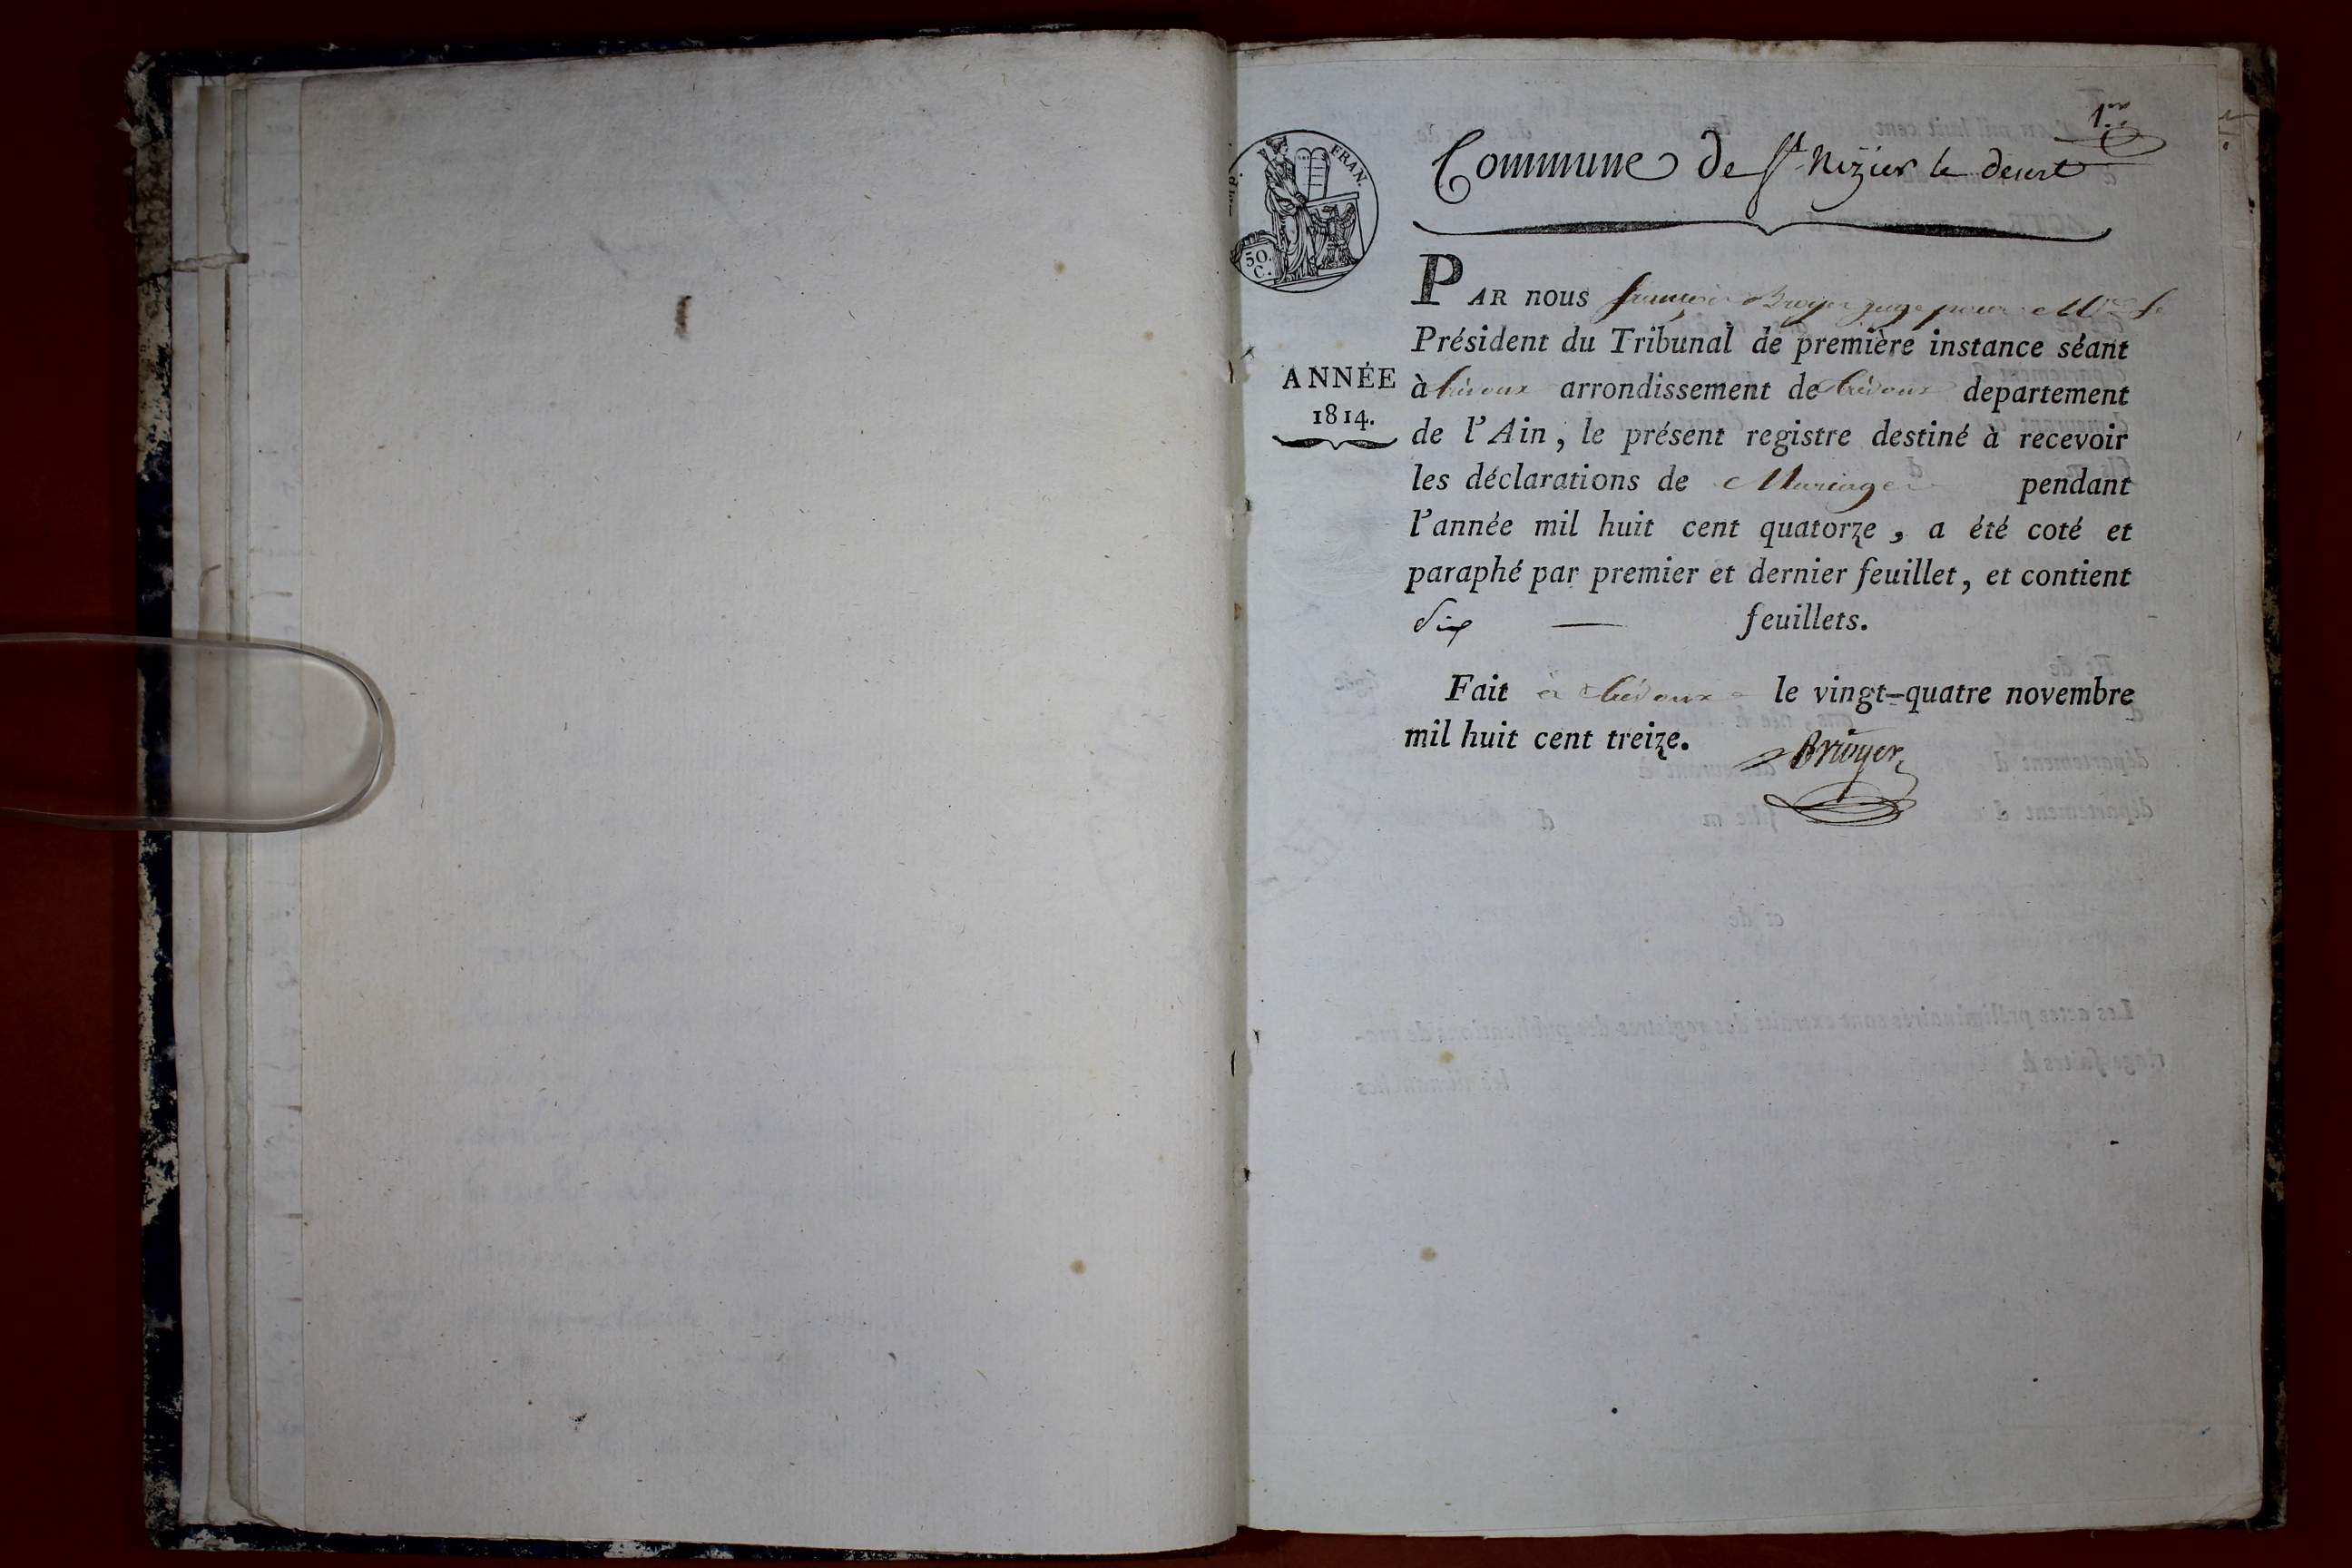 1.er
Commune de St Nizier le desert
FRAN.
50.
C.
PAR nous françois Bruyer juge pour Mr le
Président du Tribunal de première instance séant
ANNÉE
1814.
à trévoux arrondissement de trévoux departement
de l'Ain, le présent registre destiné à recevoir
les déclarations de Mariage pendant
l'année mil huit cent quatorze, a été coté et
paraphé par premier et dernier feuillet, et contient
Six — feuillets.
Fait à trévoux le vingt-quatre novembre
mil huit cent treize.